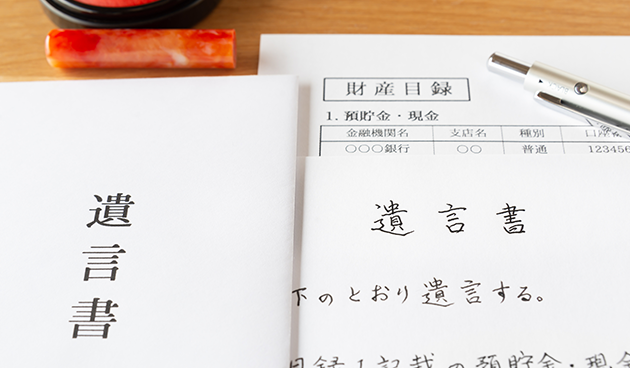 財産目録
1. 預貯金・現金
金融機関名 支店名 種別
○○○銀行 ○○ 普通 123456
遺言書
遺言書
下のとおり遺言する。
目録1記載の預貯金・現金